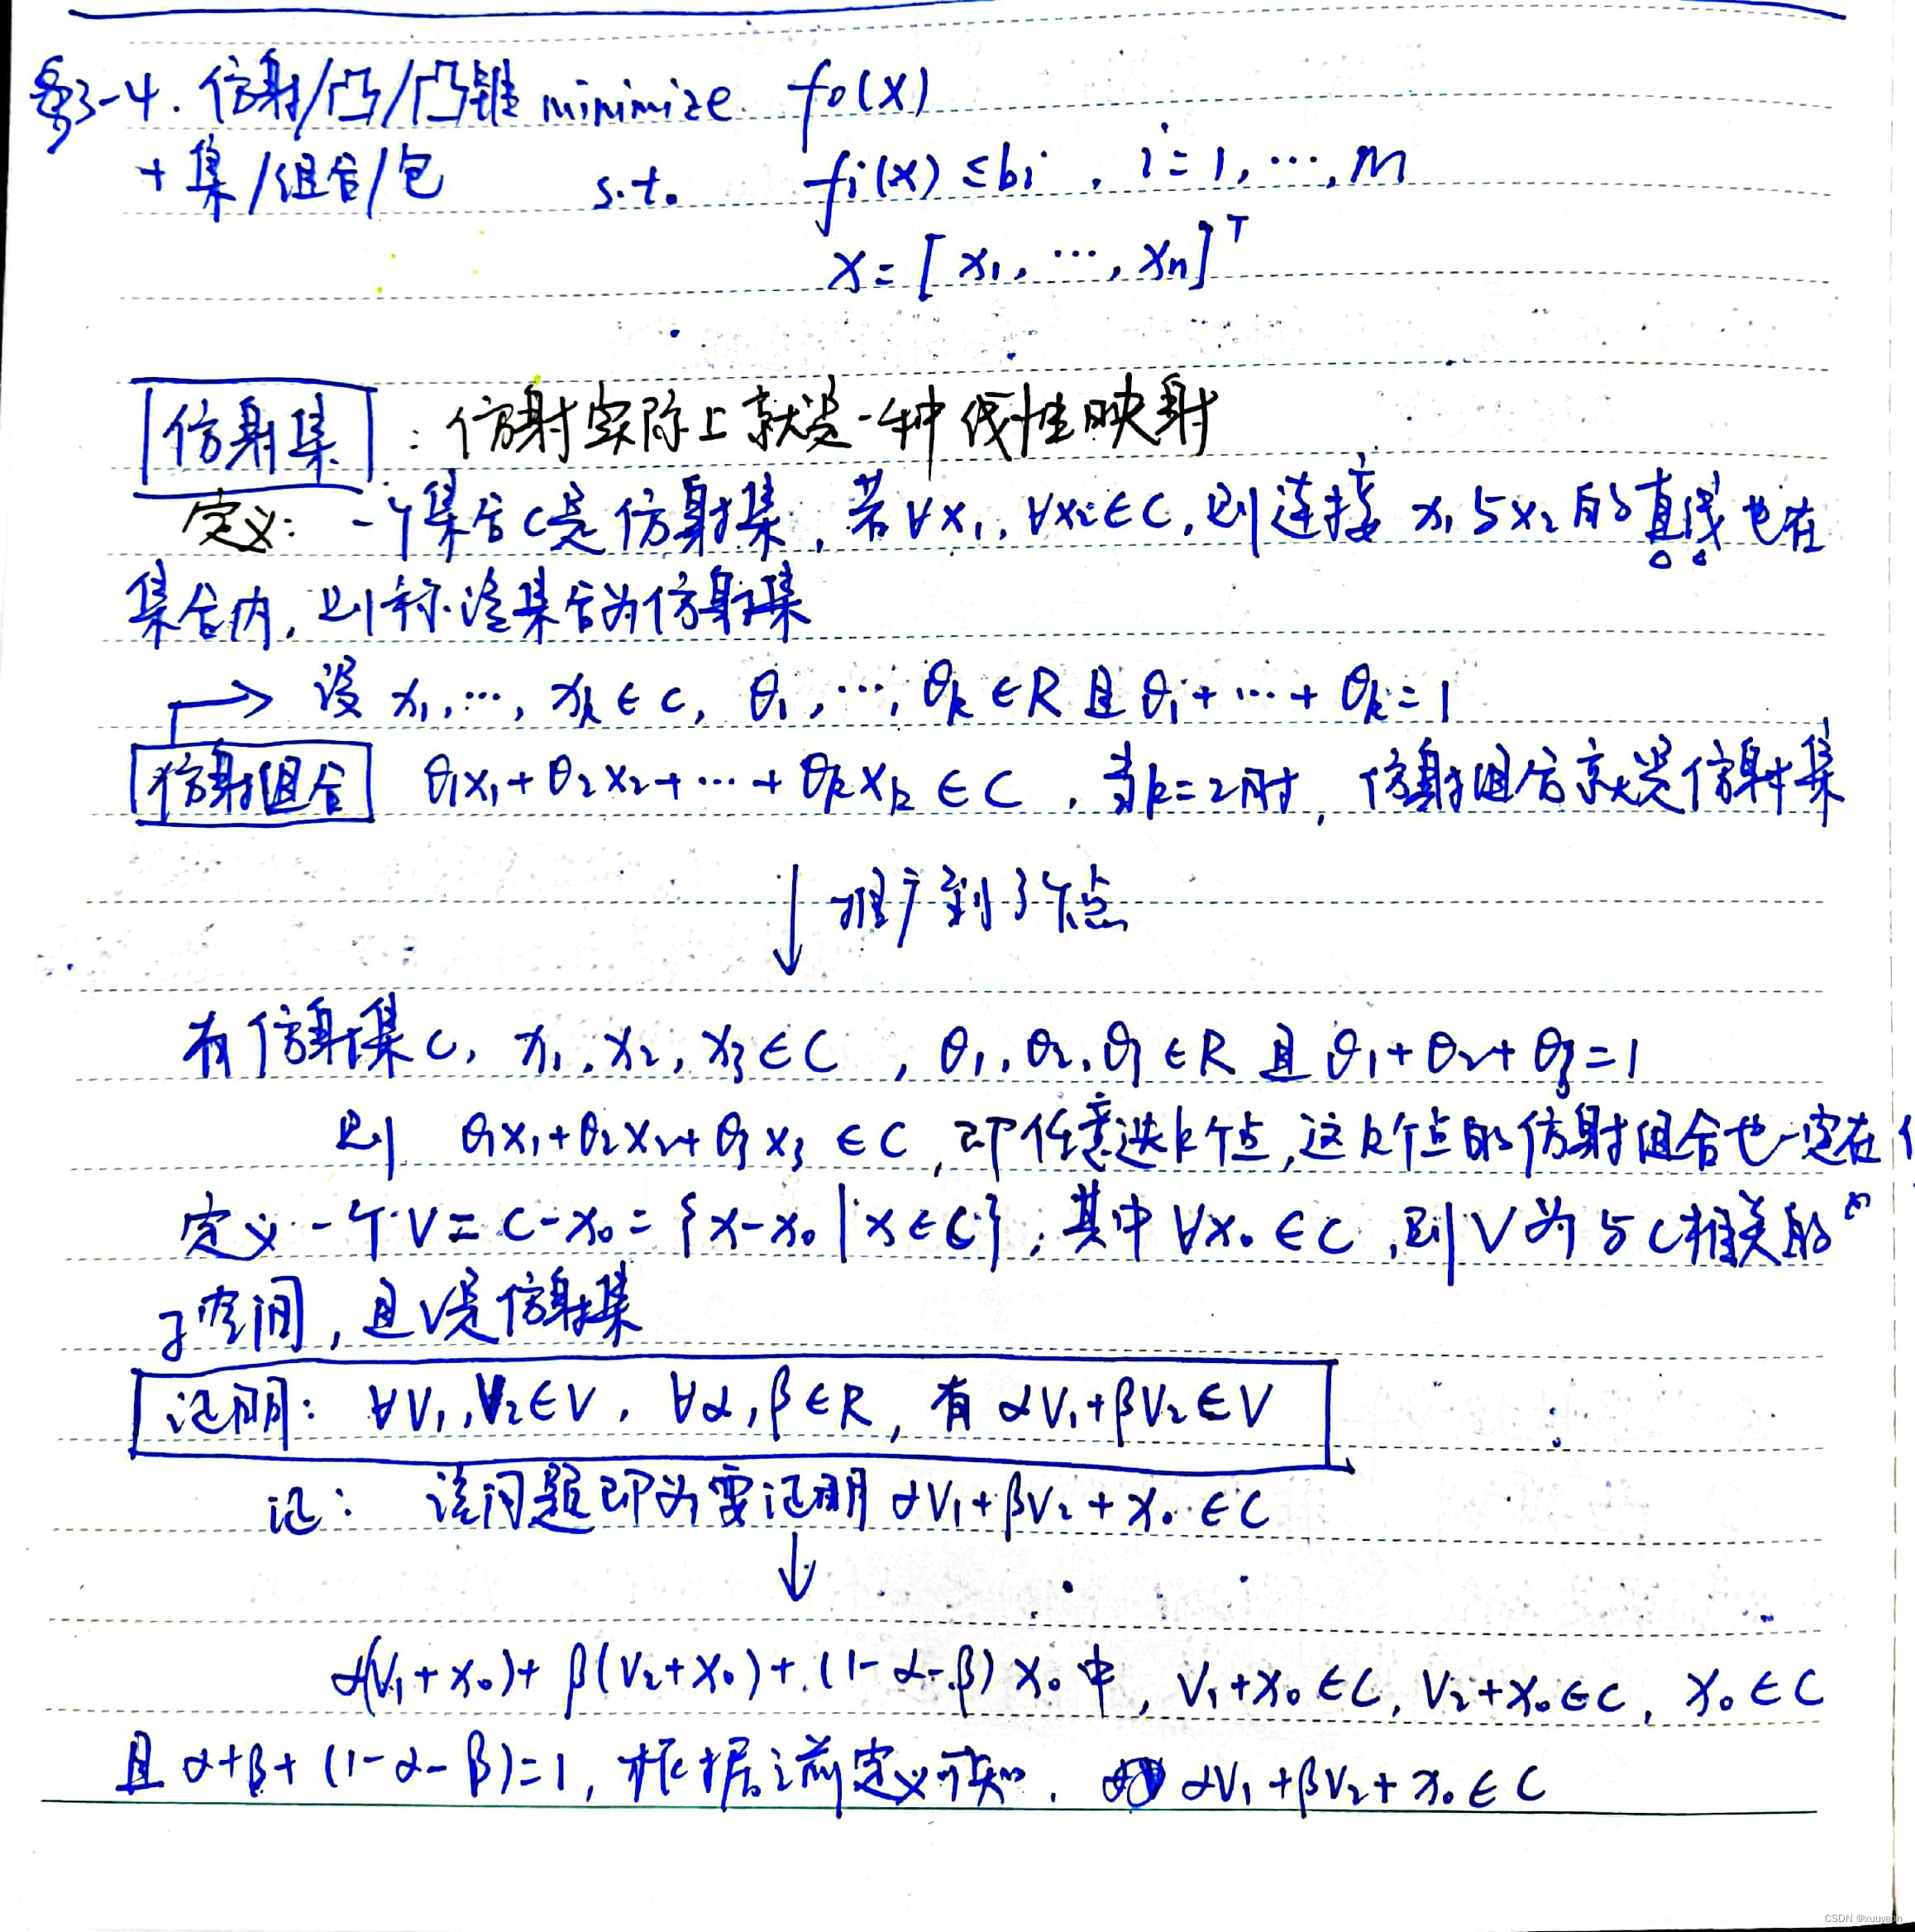 §3-4. 仿射/凸/凸锥 minimize f₀(x)
+ 集/组合/包 s.t. fi(x) ≤ bi , i = 1, ⋯, m
x = [ x₁, ⋯, xn ]ᵀ
仿射集 : 仿射实际上就是一种线性映射
定义: 一个集合C是仿射集, 若∀x₁, ∀x₂∈C, 则连接 x₁与x₂的直线也在
集合内, 则称该集合为仿射集
→ 设 x₁, ⋯, xk ∈ C, θ₁, ⋯, θk ∈ R 且 θ₁ + ⋯ + θk = 1
仿射组合 θ₁x₁ + θ₂x₂ + ⋯ + θkxk ∈ C , 当k=2时, 仿射组合就是仿射集
↓ 推广到3个点
有仿射集C, x₁, x₂, x₃ ∈ C , θ₁, θ₂, θ₃ ∈ R 且 θ₁ + θ₂ + θ₃ = 1
则 θ₁x₁ + θ₂x₂ + θ₃x₃ ∈ C, 即任意选k个点, 这k个点的仿射组合也一定在
定义一个 V = C - x₀ = {x - x₀ | x ∈ C}, 其中 ∀x₀ ∈ C, 则V为与C相关的
子空间, 且V是仿射集
证明: ∀V₁, V₂ ∈ V, ∀α, β ∈ R, 有 αV₁ + βV₂ ∈ V
证: 该问题即为要证明 αV₁ + βV₂ + x₀ ∈ C
↓
α(V₁ + x₀) + β(V₂ + x₀) + (1 - α - β) x₀ 中, V₁ + x₀ ∈ C, V₂ + x₀ ∈ C, x₀ ∈ C
且 α + β + (1 - α - β) = 1, 根据之前定义可知, αV₁ + βV₂ + x₀ ∈ C